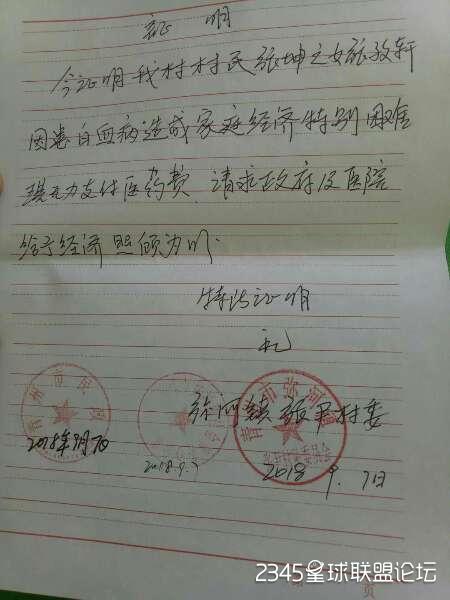 证 明
今证明我村村民张坤之女张孜轩
因患白血病造成家庭经济特别困难
现无力支付医药费.请求政府及医院
给予经济照顾为盼.
特此证明
弥河镇张 村委
青州市民政
青州市弥河镇
2018年9月7日
2018.9.7
2018 9. 7日
页
2345星球联盟论坛